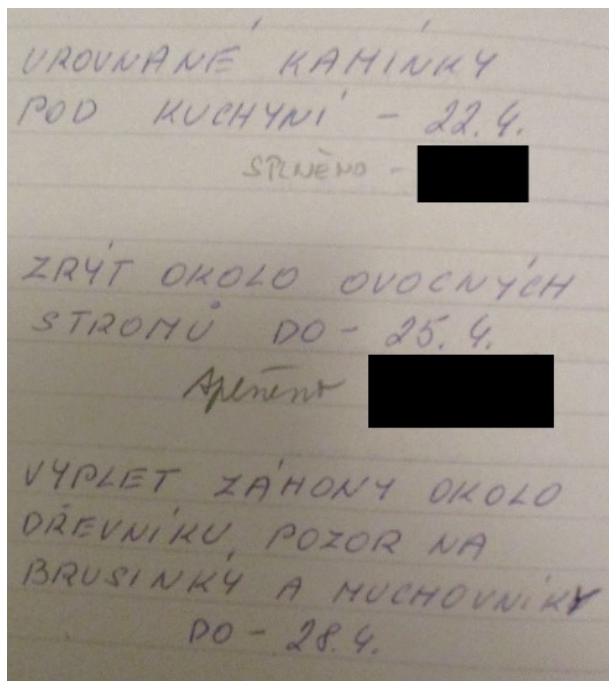 UROVNANÉ KAMÍNKY
POD KUCHYNÍ - 22.4.
SPLNĚNO -
ZRÝT OKOLO OVOCNÝCH
STROMŮ DO - 25.4.
Splněno
VYPLET ZÁHONY OKOLO
DŘEVNÍKU, POZOR NA
BRUSINKY A MUCHOVNÍKY
DO - 28.4.